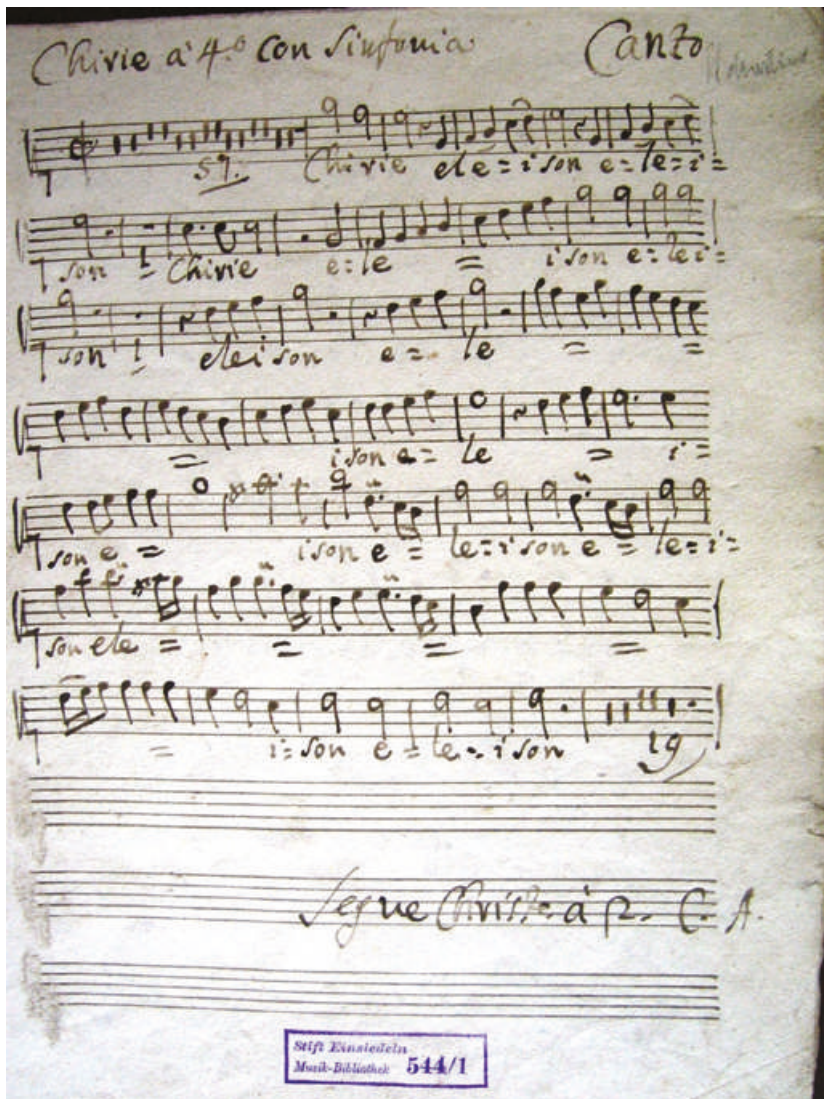 Chirie a' 4.º con Sinfonia Canto
57. Chirie ele = ison e = le = i =
son = Chirie e = le = ison e = lei =
son elei son e = le = =
= ison e = le = i =
son e = ison e = le = i son e = le = i =
son ele = = = =
= i = son e = le = i son 19
Segue Christe à 2. C. A.
Stift Einsiedeln
Musik-Bibliothek 544/1